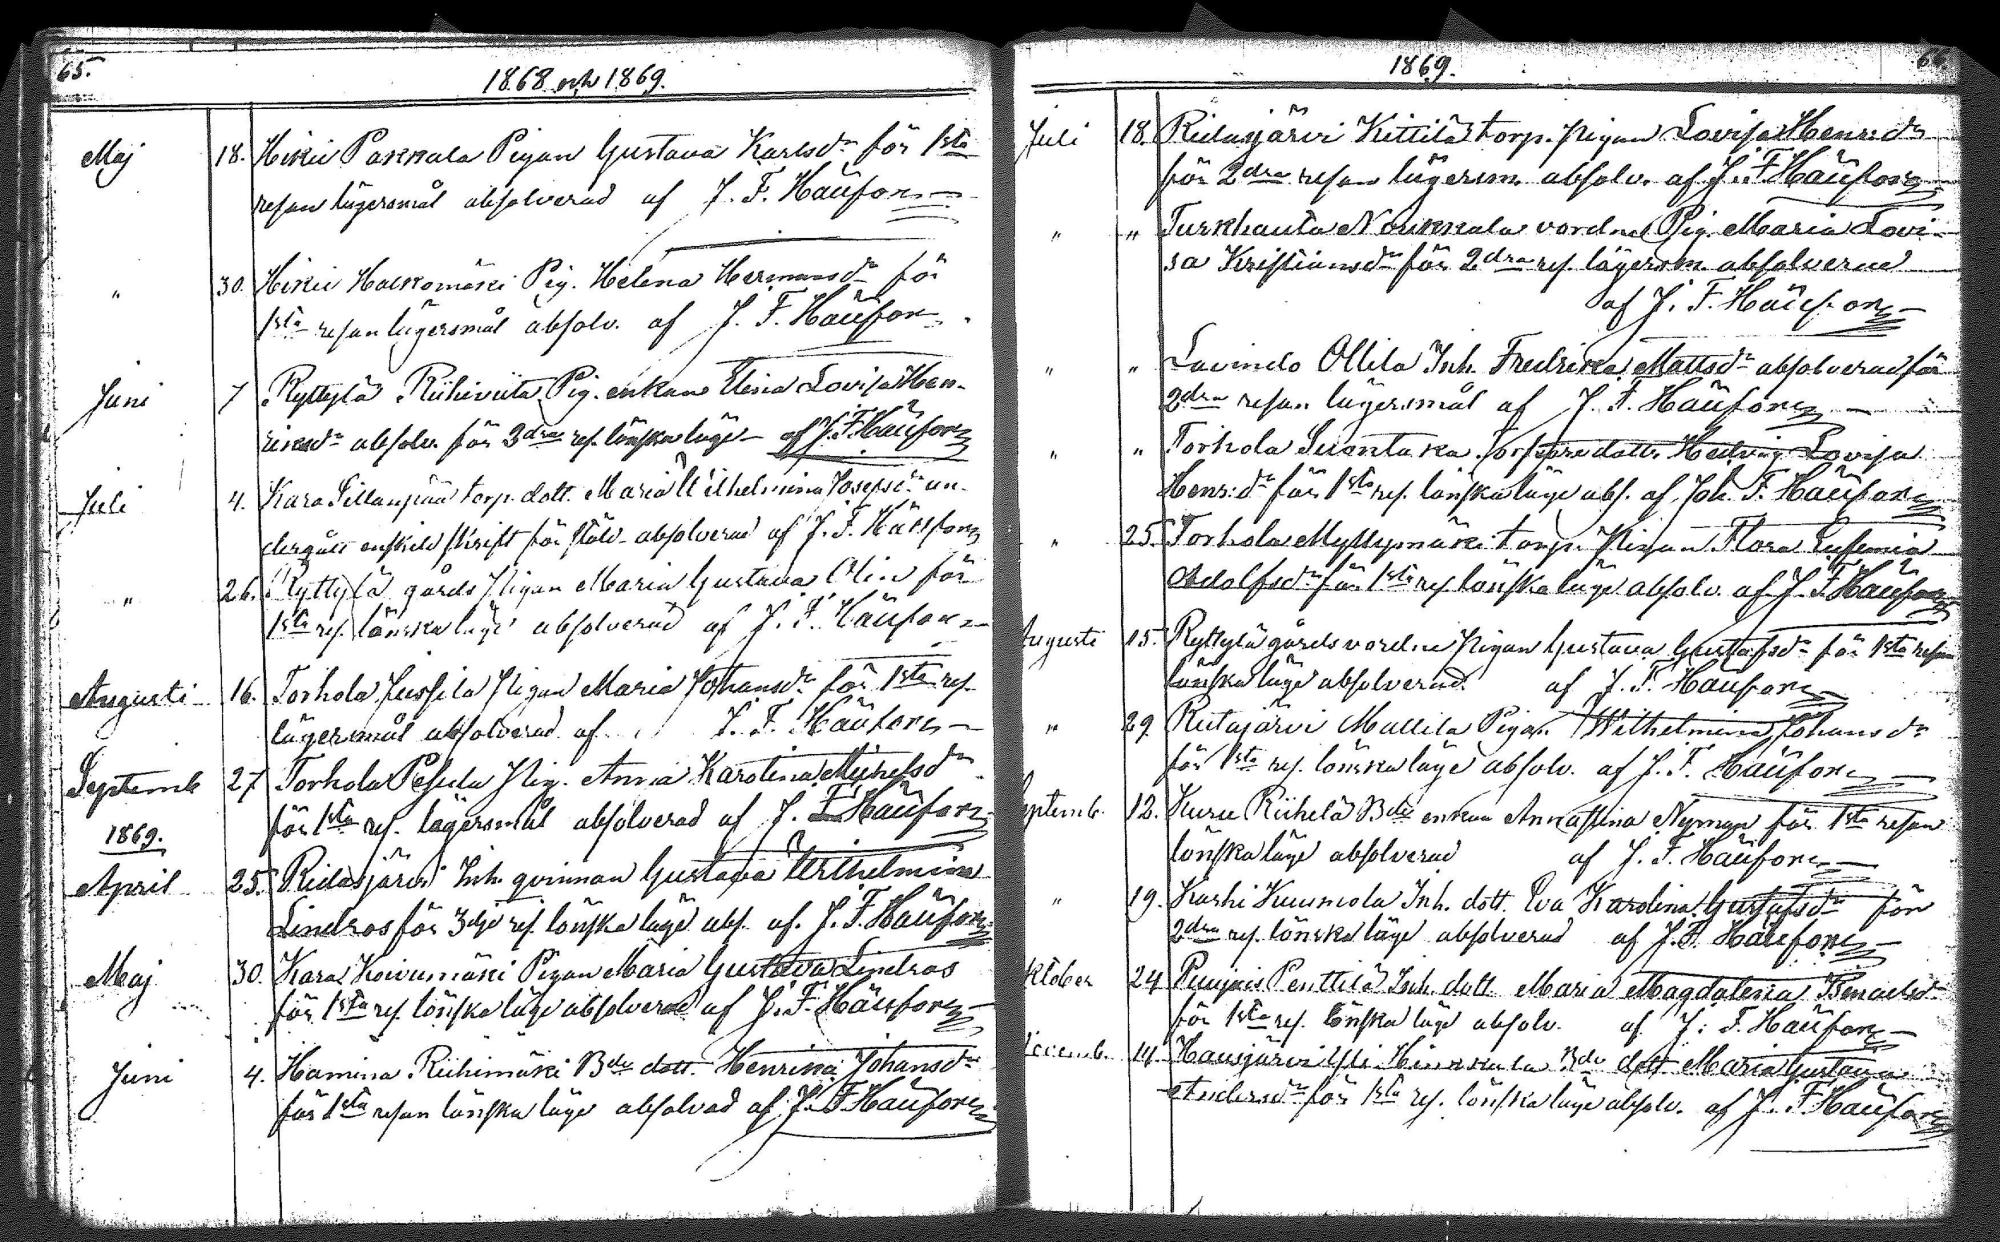 65.
1868 och 1869.
Maj 18. Hikiä Pakkala Pigan Gustava Karlsdr för 1sta
resan lägersmål absolverad af J. F. Häüfors
" 30. Hikiä Hakomäki Pig. Helena Hermansdr för
1sta resan lägersmål absolv. af J. F. Häüfors
Juni 7 Ryttylä Riihiviita Pig. enkan Elena Lovisa Hen-
riksdr absolv. för 2dra res. lönskaläge af J. F. Häüfors
Juli 4. Kara Sillanpää torp. dott. Maria Wilhelmina Josefsdr un-
dergått enskild skrift för stöld absolverad af J. F. Häüfors
" 26. Ryttylä gårds Pigan Maria Gustava Olin för
1sta res. lönskaläge absolverad af J. F. Häüfors
Augusti 16. Torhola Jussila Pigan Maria Johansdr för 1sta res.
lägersmål absolverad af J. F. Häüfors
Septemb 27 Torhola Pesula Pig. Anna Karolina Michelsdr
för 1sta res. lägersmål absolverad af J. F. Häüfors
1869.
April 25. Ridasjärvi Inh. qvinnan Gustava Wilhelmina
Lindros för 3dje res. lönskaläge abs. af J. F. Häüfors
Maj 30. Kara Koivumäki Pigan Maria Gustava Lindros
för 1sta res. lönskaläge absolverad af J. F. Häüfors
Juni 4. Hamina Riihimäki Bde dott. Henrika Johansdr
för 1sta resan lönskaläge absolvad af J. F. Häüfors
66.
1869.
Juli 18. Ridasjärvi Kittilä torp. Pigan Lovisa Henr:dr
för 2dra resan lägersm. absolv. af J. F. Häüfors
" " Turkhauta Noukkala vordne Pig. Maria Lovi-
sa Kristiansdr för 2dra res. lägersm. absolverad
af J. F. Häüfors
" " Lavindo Ollila Inh. Fredrika Mattsdr absolverad för
2dra resan lägersmål af J. F. Häüfors
" " Torhola Suontaka Torpare dott. Hedvig Lovisa
Henr:dr för 1sta res. lönskaläge abs. af Joh. F. Häüfors
" 25. Torhola Myllymäki torp. Pigan Flora Eufemia
Adolfsdr för 1sta res. lönskaläge absolv. af J. F. Häüfors
Augusti 15. Ryttylä gårds vordne Pigan Gustava Gustafsdr för 1sta resan
lönskaläge absolverad. af J. F. Häüfors
" 29 Ritasjärvi Mallila Pigan Wilhelmina Johansdr
för 1sta res. lönskaläge absolv. af J. F. Häüfors
ptemb. 12. Kuru Riihelä Bde enkan Anna Stina Nyman för 1sta resan
lönskaläge absolverad af J. F. Häüfors
" 19. Karhi Kuumola Inh. dott. Eva Karolina Gustafsdr för
2dra res. lönskaläge absolverad af J. F. Häüfors
ktober 24 Puujois Penttilä Inh. dott. Maria Magdalena
för 1sta res. lönskaläge absolv. af J. F. Häüfors
ovemb. 14. Hausjärvi Yli Hinkkala Bde dott Maria Gustava
Andersdr för 1sta res. lönskaläge absolv. af J. F. Häüfors